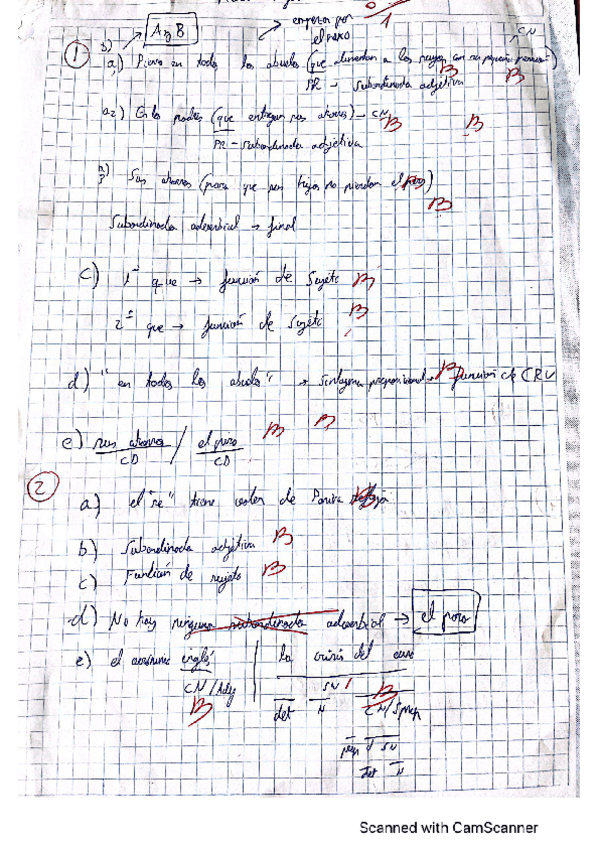 A y B
empezar por
el paso
1
CN
1 b)
a) Pienso en todos los abuelos (que alimentan a los suyos con sus pequeñas pensiones)
B B
PR - Subordinada adjetiva
a2) En los padres (que entregan sus ahorros) → CN B B
PR - Subordinada adjetiva
Sus ahorros (para que sus hijos no pierdan el piso)
B
Subordinada adverbial → final
c) 1º que → función de Sujeto B
2º que → función de Sujeto B
d) "en todos los abuelos" → sintagma preposicional → B función de CRV
e) sus ahorros / el piso B B
CD CD
2
a) el "se" tiene valor de Pasiva refleja B
b) Subordinada adjetiva B
c) Función de sujeto B
d) No hay ninguna subordinada adverbial → el paso
e) el inglés la crisis del euro
CN/Adj SN B
B det N CN/Sprep
prep d SN
det N
Scanned with CamScanner